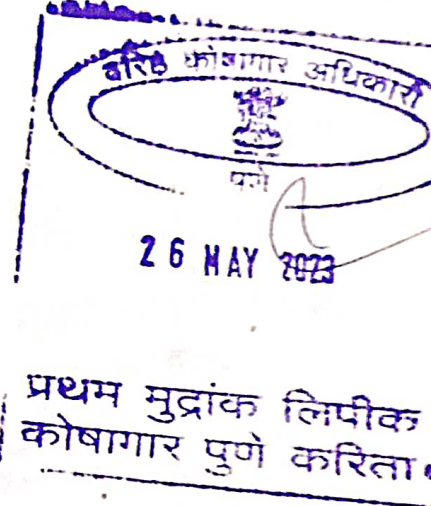 वरिष्ठ कोषागार अधिकारी
पुणे
26 MAY 2023
प्रथम मुद्रांक लिपीक
कोषागार पुणे करिता.